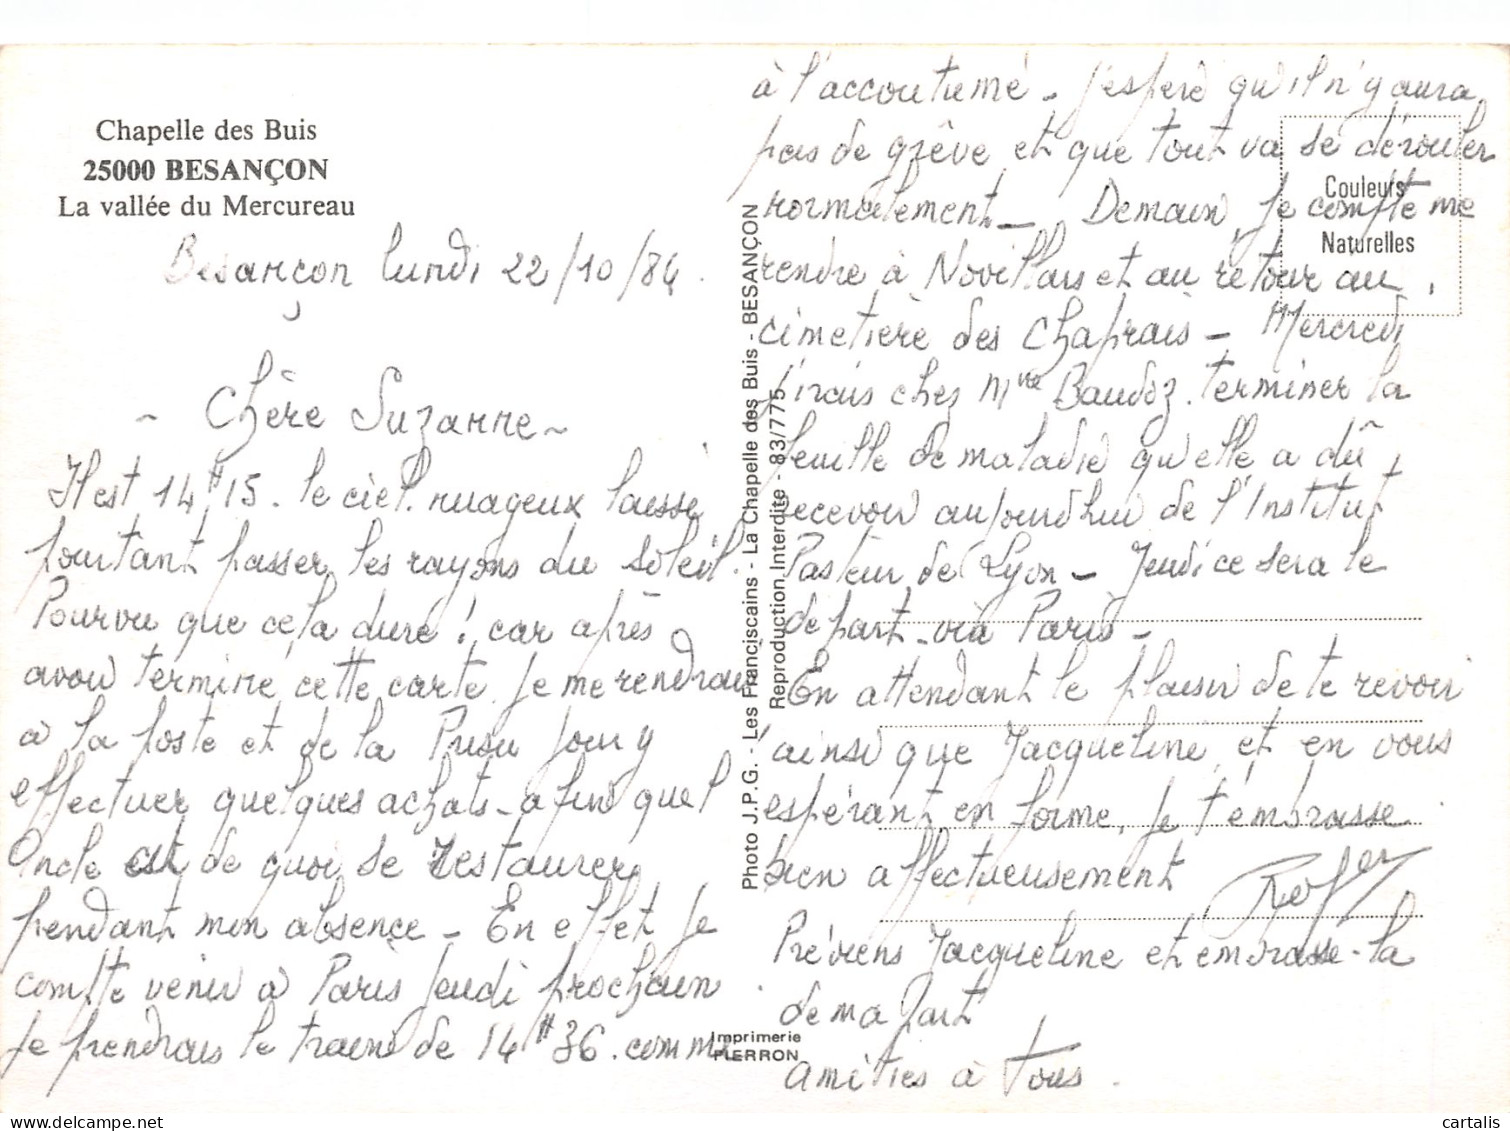 Chapelle des Buis
25000 BESANÇON
La vallée du Mercureau
Besançon lundi 22/10/84.
~ Chère Suzanne ~
Il est 14H15. le ciel nuageux laisse
pourtant passer les rayons du soleil.
Pourvu que cela dure ! car après
avoir terminé cette carte, je me rendrai
à la poste et de la Prisu pour y
effectuer quelques achats - afin que l'
Oncle ait de quoi se restaurer
pendant mon absence - En effet je
compte venir à Paris Jeudi prochain.
Je prendrais le train de 14H36. comme
à l'accoutumé - j'espère qu'il n'y aura
pas de grève et que tout va se dérouler
normalement - Demain, je compte me
rendre à Novillars et au retour au
cimetière des Chaprais - Mercredi
j'irais chez Mme Baudoz terminer la
feuille de maladie qu'elle a dû
recevoir aujourd'hui de l'Institut
Pasteur de Lyon - Jeudi ce sera le
départ - via Paris -
En attendant le plaisir de te revoir
ainsi que Jacqueline, et en vous
espérant en forme, je t'embrasse
bien affectueusement Roger
Préviens Jacqueline et embrasse-la
de ma part
amitiés à tous.
Couleurs
Naturelles
Photo J.P.G. - Les Franciscains - La Chapelle des Buis - BESANÇON
Reproduction Interdite - 83/775
Imprimerie
PIERRON
cartalis